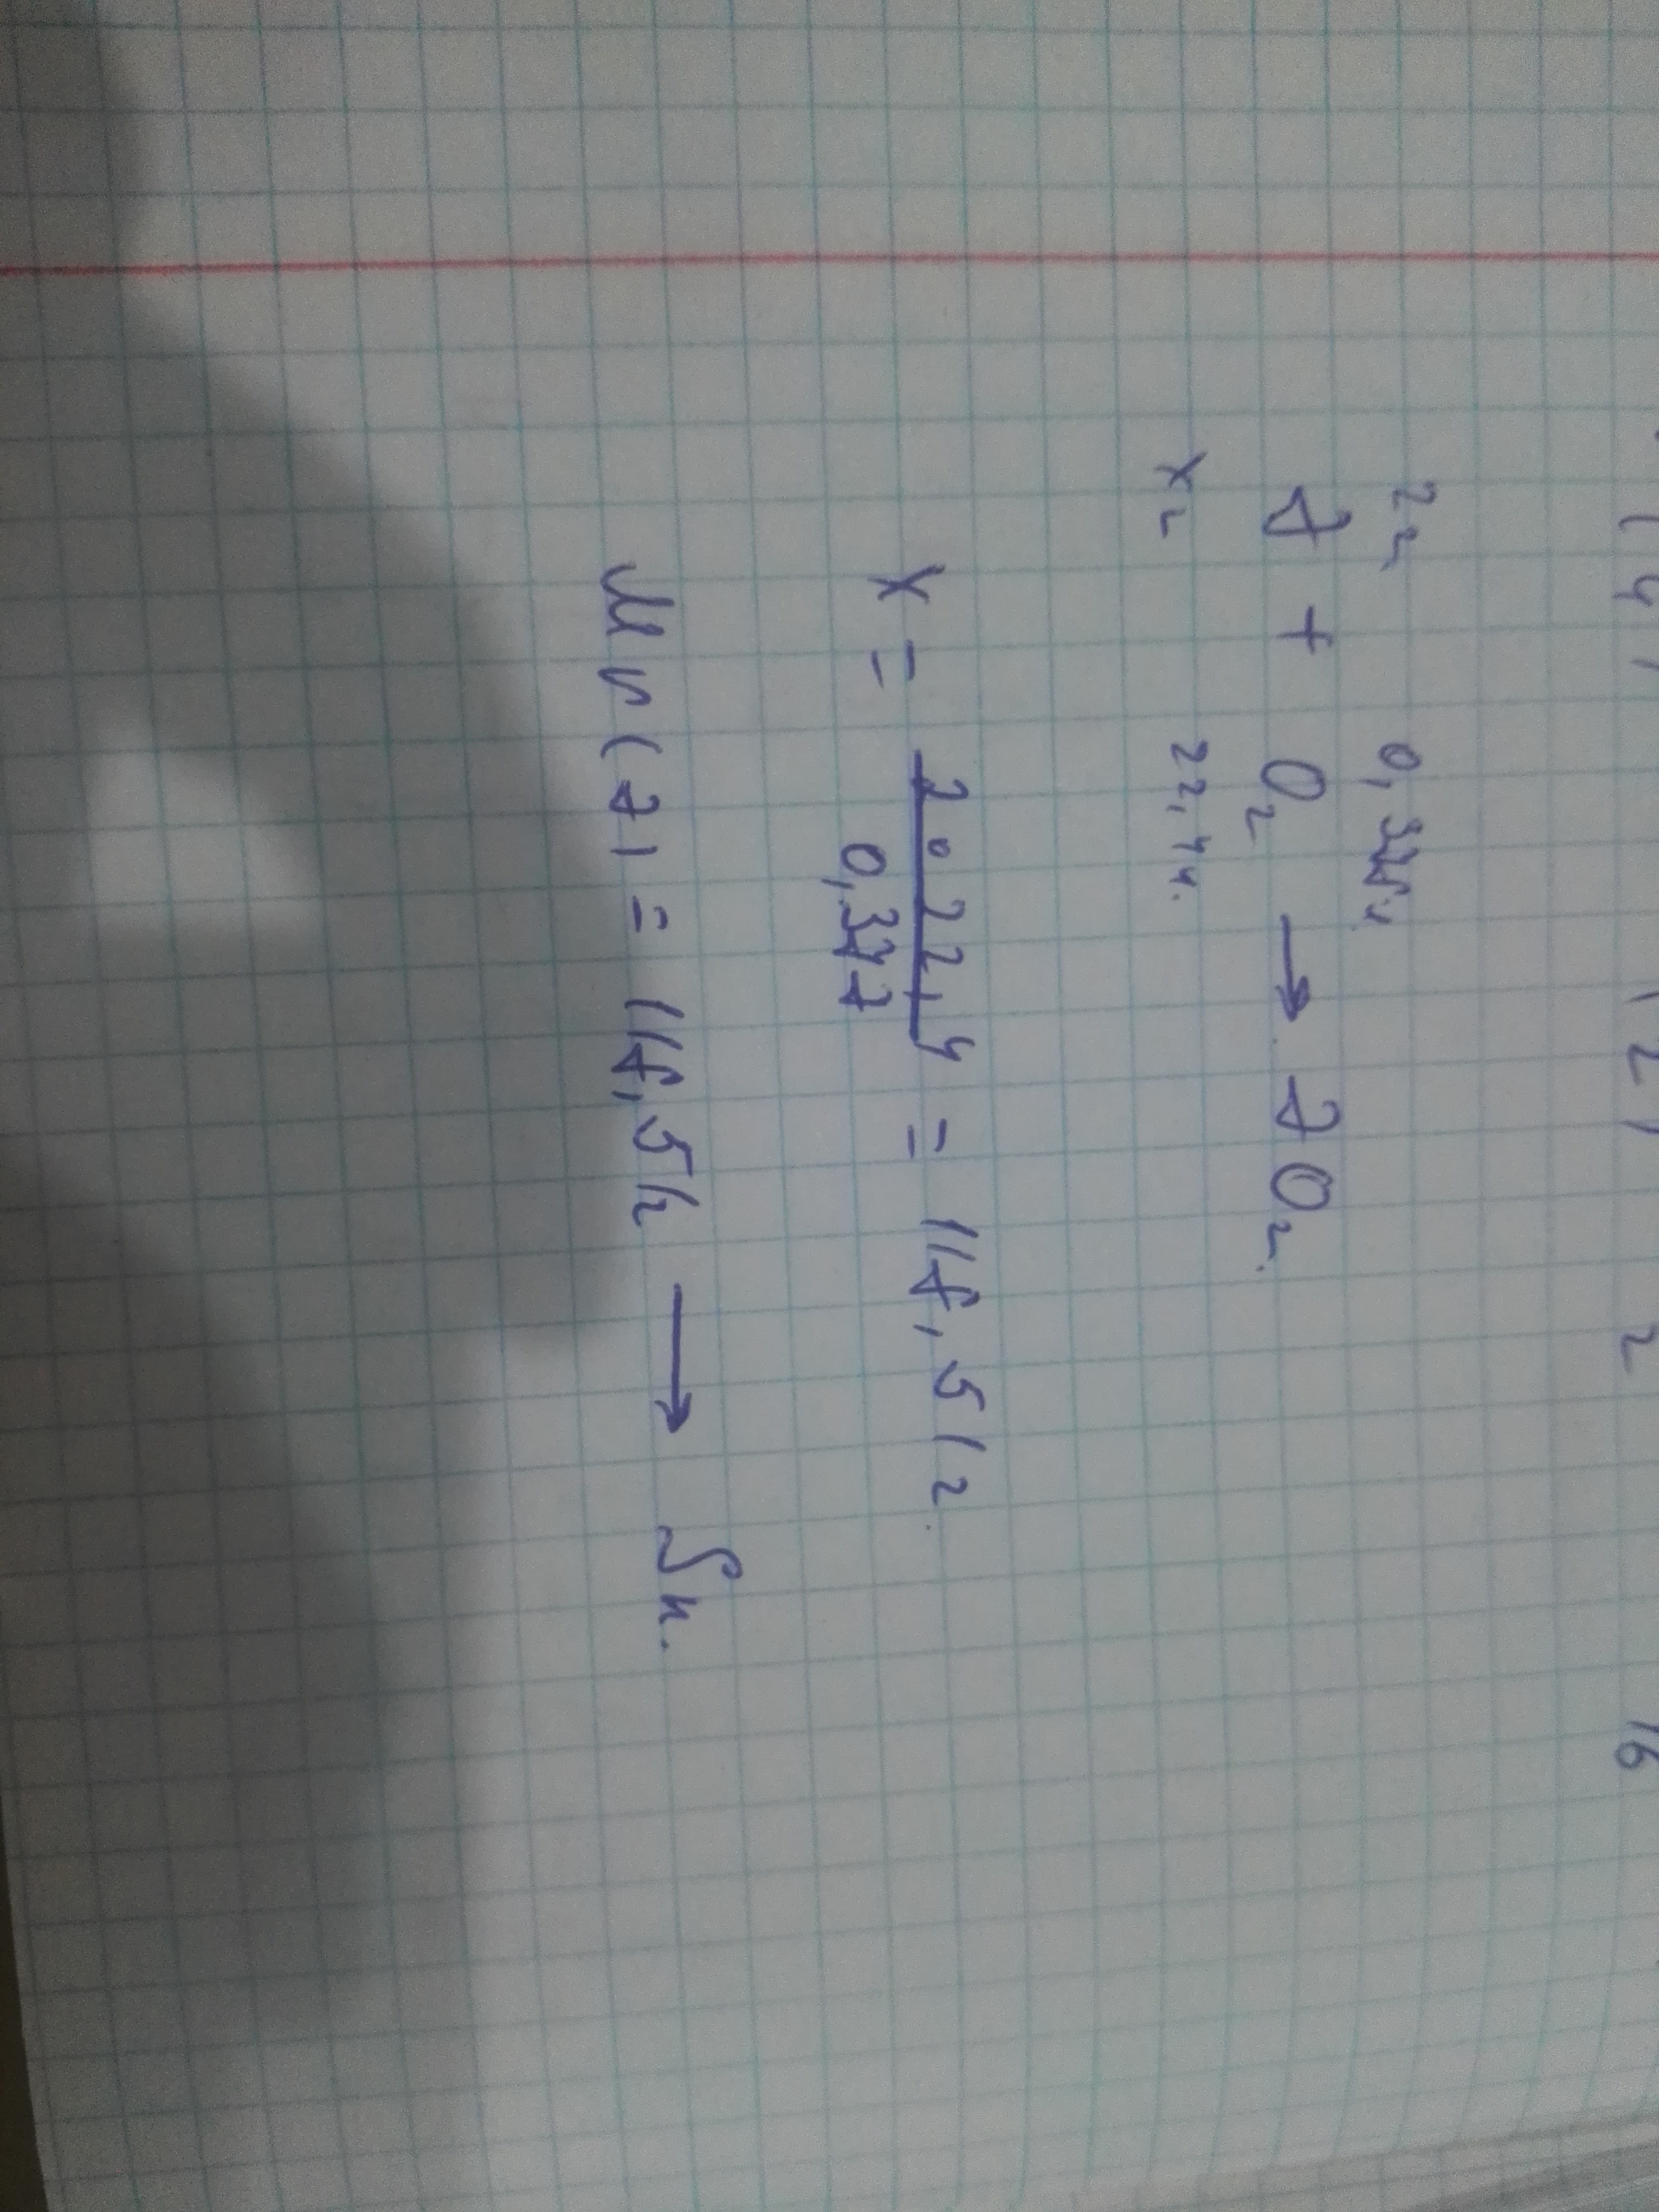 2г 0,378л
Э + O₂ → ЭO₂.
Xг 22,4л.
X = 2 ∘ 22,4 / 0,377 = 118,51г.
Mr(Э) = 118,51 → Sn.